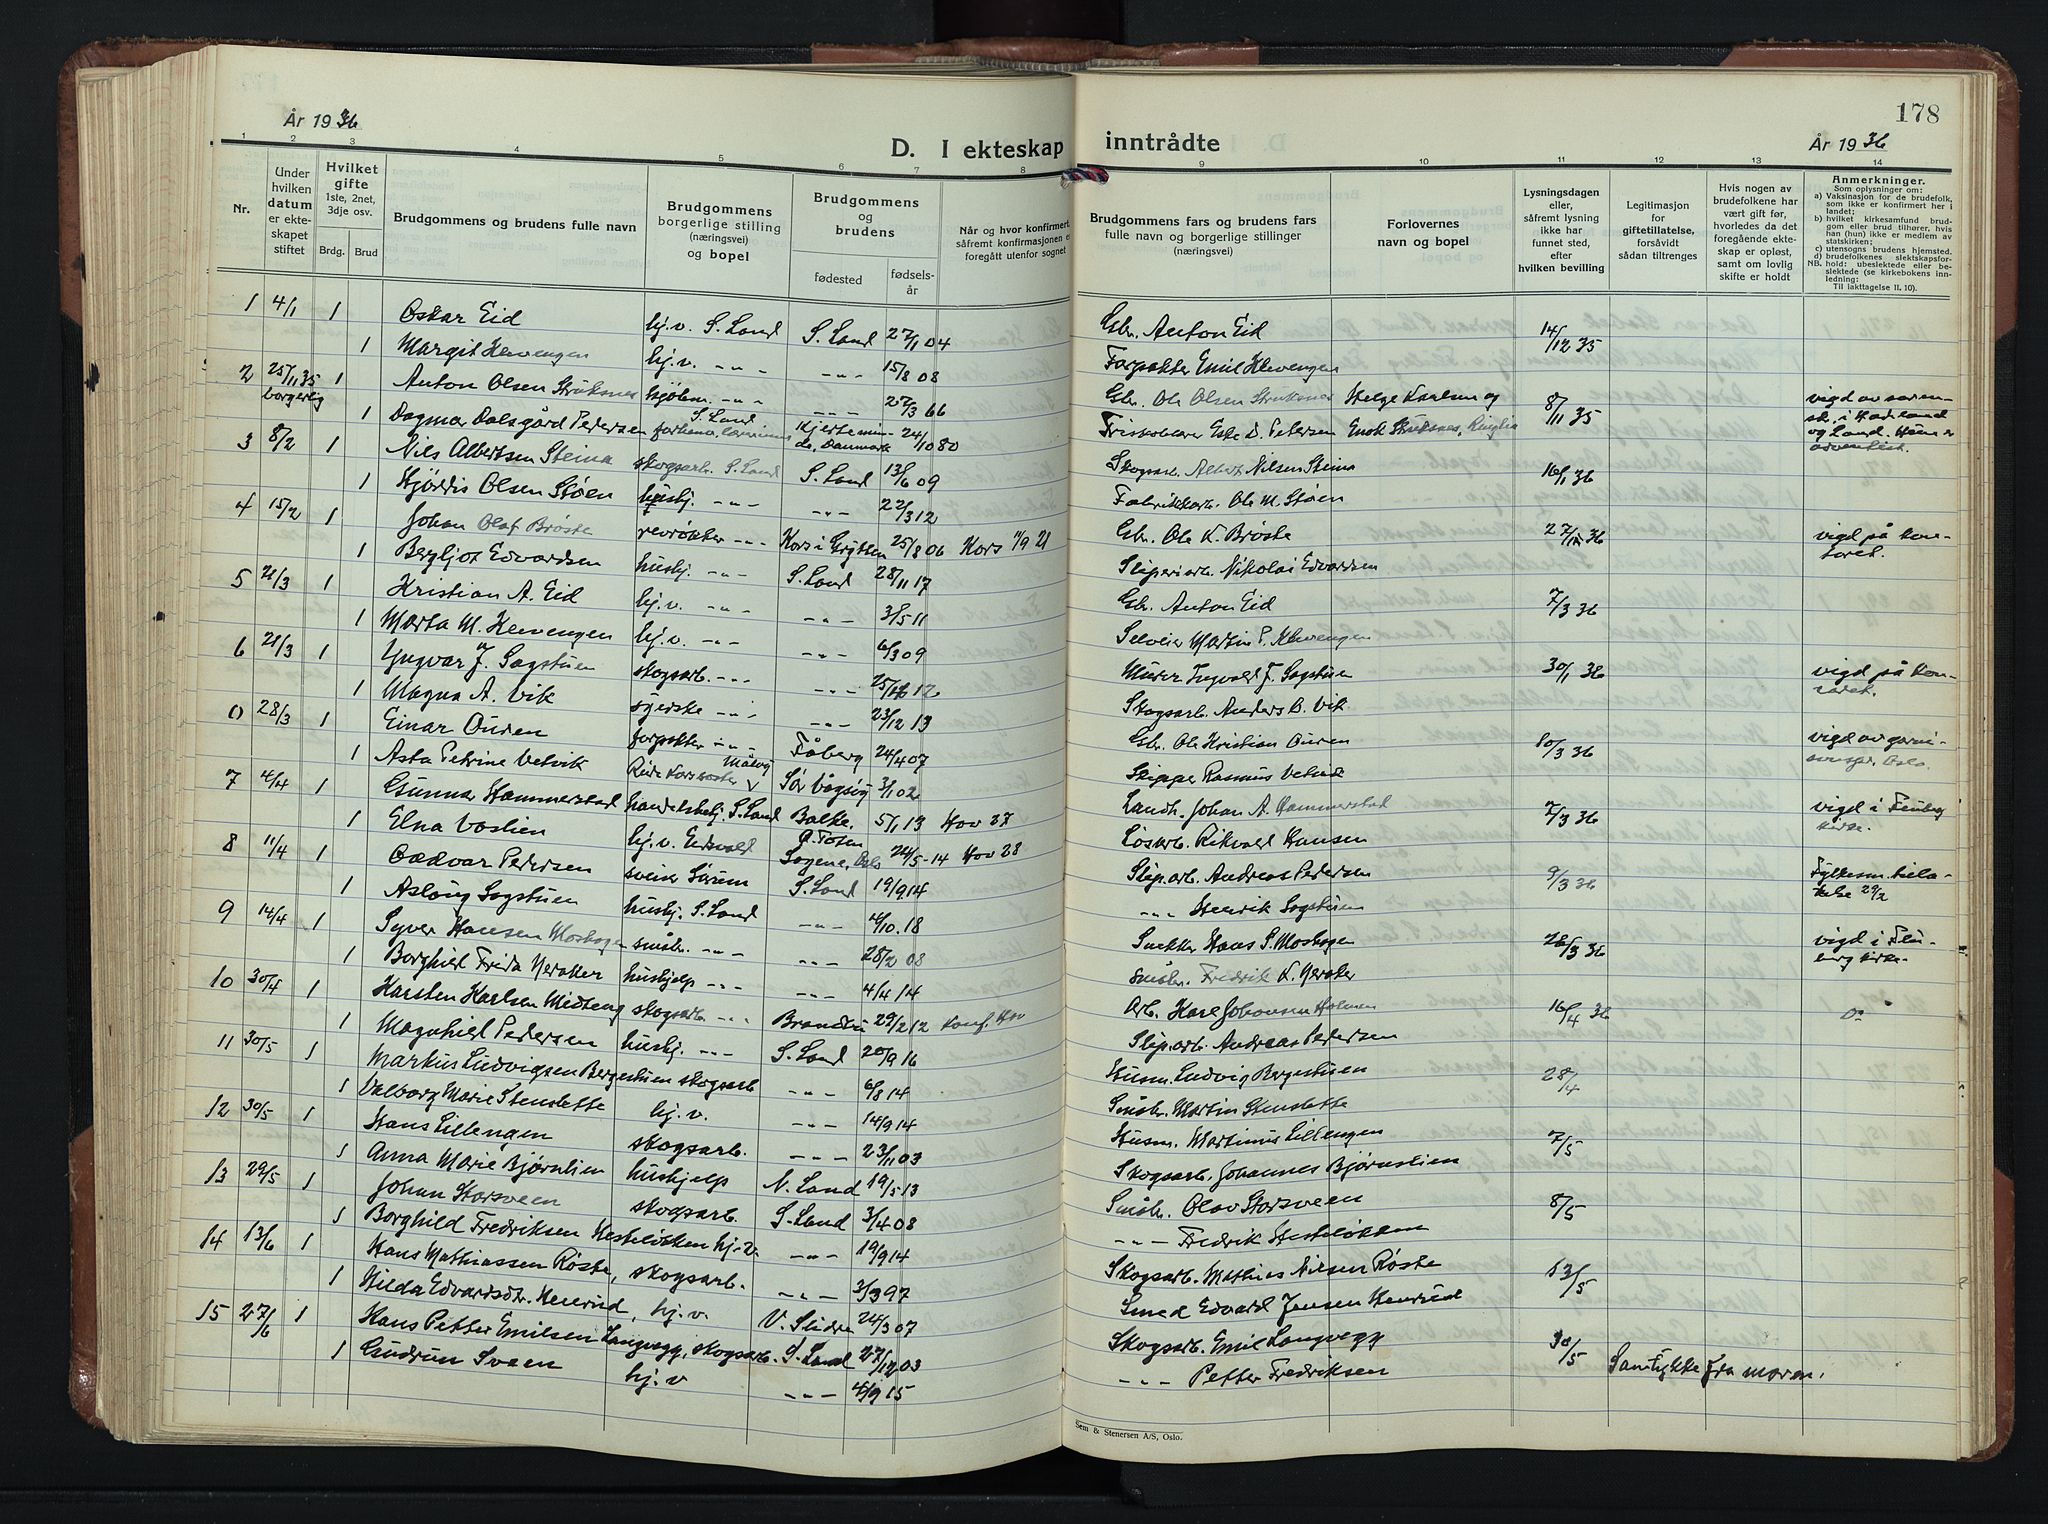 År 1936
D. I ekteskap inntrådte
178
År 1936
1 2 3 4 5 6 7 8 9 10 11 12 13 14
Nr.
Under hvilken datum er ekteskapet stiftet
Hvilket gifte 1ste, 2net, 3dje osv.
Brdg. Brud
Brudgommens og brudens fulle navn
Brudgommens borgerlige stilling (næringsvei) og bopel
Brudgommens og brudens
fødested
fødselsår
Når og hvor konfirmert, såfremt konfirmasjonen er foregått utenfor sognet
Brudgommens fars og brudens fars fulle navn og borgerlige stillinger (næringsvei)
Forlovernes navn og bopel
Lysningsdagen eller, såfremt lysning ikke har funnet sted, efter hvilken bevilling
Legitimasjon for giftetillatelse, forsåvidt sådan tiltrenges
Hvis nogen av brudefolkene har vært gift før, hvorledes da det foregående ekteskap er opløst, samt om lovlig skifte er holdt
Anmerkninger.
Som oplysninger om:
a) Vaksinasjon for de brudefolk, som ikke er konfirmert her i landet;
b) hvilket kirkesamfund brudgom eller brud tilhører, hvis han (hun) ikke er medlem av statskirken;
c) utensogns brudens hjemsted.
d) brudefolkenes slektskapsforhold: ubeslektede eller beslektede (se kirkebokens innledning:
NB. Til iakttagelse II. 10).
1 4/1 1 Oskar Eid hj.v. S. Land S. Land 27/1 04 Gbr. Anton Eid 14/12 35
1 Margit Klevengen hj.v. -"- -"- 15/8 08 Forpakter Emil Klevengen
2 25/11 35 borgerlig 1 Anton Olsen Struksnes -"- -"- 27/3 66 Gbr. Ole Olsen Struksnes Helge Karlsen og 8/11 35 vigd av sorensk. i Hadeland og Land.
1 Dagmar Dalsgård Pedersen S. Land Kjerteminde, Danmark 24/10 80 Petersen Enok Struksnes adventist.
3 8/2 1 Nils Albertsen Steina skogsarb. S. Land S. Land 13/6 09 Skogsarb. Albert Nilsen Steina 16/1 36
1 Hjørdis Olsen Støen hushj. -"- -"- 22/3 12 Fabrikkarb. Ole M. Støen
4 15/2 1 Johan Olaf Brøste revrøkter -"- Kors i Grytten 25/8 06 Kors 11/9 21 Gbr. Ole K. Brøste 27/1 36 vigd på kontoret.
1 Bergljot Edvardsen hushj. -"- S. Land 28/11 17 Sliperiarb. Nikolai Edvardsen
5 21/3 1 Kristian A. Eid hj.v. -"- -"- 3/5 11 Gbr. Anton Eid 7/3 36
1 Marta M. Klevengen hj.v. -"- -"- 6/3 09 Selveier Martin P. Klevengen
6 21/3 1 Yngvar J. Sagstuen skogsarb. -"- -"- 25/12 12 Murer Ingvald J. Sagstuen 30/1 36 vigd på kontoret.
1 Magna A. Vik syerske -"- -"- 23/12 13 Skogsarb. Anders B. Vik
0 28/3 1 Einar Ouren forpakter -"- Fåberg 24/4 07 Gbr. Ole Kristian Ouren 10/3 36 vigd av garnisonspr. Oslo.
1 Asta Petrine Vetvik Røde Korssøster Måløy Sør Vågsøy 3/1 02 Skipper Rasmus Vetvik
7 4/4 1 Gunnar Hammerstad handelsbetj. S. Land Balke, Ø. Toten 5/1 13 Hov 27 Landh. Johan A. Hammerstad 7/3 36 vigd i Fluberg kirke.
1 Elna Vaslien hj.v. Eidsvold Sagene, Oslo 24/5 14 Hov 28 Løsarb. Rikvald Hansen
8 11/4 1 Oddvar Pedersen sveiser Sørum S. Land 19/9 14 Slip.arb. Andreas Pedersen 9/3 36 Fylkesm. tillatelse 29/2
1 Aslaug Sagstuen hushj. S. Land -"- 4/10 18 -"- Henrik Sagstuen
9 14/4 1 Syver Hansen Moshagen småbr. -"- -"- 28/2 08 Snekker Hans S. Moshagen 26/3 36 vigd i Fluberg kirke.
1 Borghild Frida Neraker hushjelp -"- -"- 4/4 14 Småbr. Fredrik K. Neraker
10 30/4 1 Karsten Karlsen Midteng skogsarb. -"- Brandbu 29/2 12 konf. Hov Arb. Karl Johansen Holmen 16/4 36 Do
1 Magnhild Pedersen hushj. -"- S. Land 20/9 16 Slip.arb. Andreas Pedersen
11 30/5 1 Markus Ludvigsen Bergestuen skogsarb -"- 6/8 14 Husm. Ludvig Bergestuen 28/4
1 Valborg Marie Stenslette hj.v. -"- 14/9 14 Småbr. Martin Stenslette
12 30/5 1 Hans Lillengen skogsarb. -"- 23/11 03 Husm. Martinus Lillengen 7/5
1 Anna Marie Bjørnlien hushjelp N. Land 19/5 13 Skogsarb. Johannes Bjørnlien
13 29/5 1 Johan Storsveen skogsarb. S. Land 3/4 08 Småbr. Olav Storsveen 8/5
1 Borghild Fredriksen Hesteløkken hj.v. -"- 19/9 14 -"- Fredrik Hesteløkken
14 13/6 1 Hans Mathiassen Røste, skogsarb. -"- 3/3 97 Skogsarb. Mathias Nilsen Røste 13/5
1 Hilda Edvardsdtr. Henrud, hj.v. V. Slidre 24/3 07 Smed Edvard Jensen Henrud
15 27/6 1 Hans Petter Emilsen Langvegg, skogsarb. S. Land 27/12 03 Skogsarb. Emil Langvegg 30/5
1 Gudrun Sveen hj.v -"- 4/9 15 -"- Petter Fredriksen Samtykke fra moren.
Sem & Stenersen A/S, Oslo.